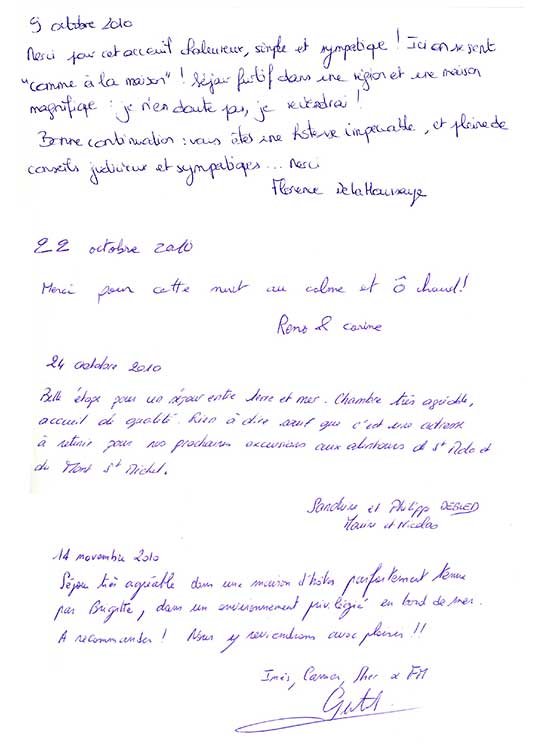 9 octobre 2010
Merci pour cet accueil chaleureux, simple et sympatique ! Ici on se sent
"comme à la maison" ! Séjour furtif dans une région et une maison
magnifique : je n'en doute pas, je reviendrai !
Bonne continuation : vous êtes une hôtesse impeccable, et pleine de
conseils judicieux et sympatiques ... Merci
Florence Delahoussaye
22 octobre 2010
Merci pour cette nuit au calme et Ô chaud!
Reno & Carine
24 octobre 2010
Belle étape pour un séjour entre terre et mer. Chambre très agréable,
accueil de qualité. Rien à dire sauf que c'est une adresse
à retenir pour nos prochaines excursions aux alentours de St Malo et
du Mont St Michel.
Sandrine et Philipp DEBLED
et Nicolas
14 novembre 2010
Séjour très agréable dans une maison d'hôtes parfaitement tenue
par Brigitte, dans un environnement privilégié en bord de mer.
A recommander ! Nous y reviendrons avec plaisir !!
Inès, & FM